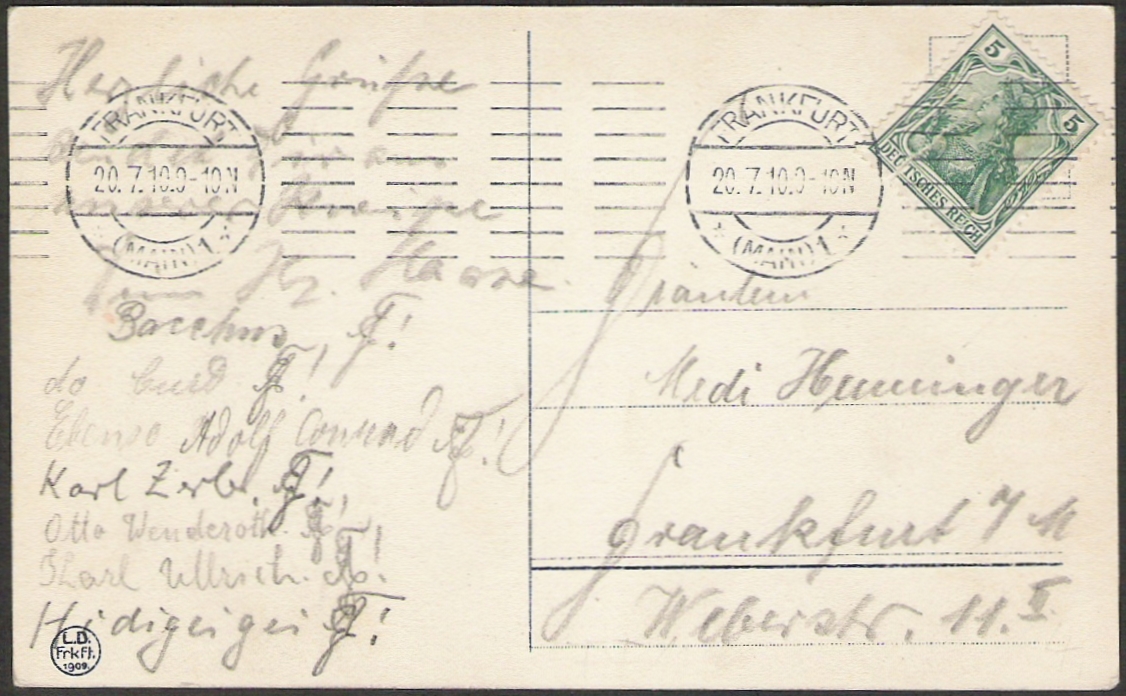 Herzliche Grüsse
sendet Dir von
unserer Kneipe
Bacchus,
Ebenso Adolf Conrad
Karl Zerbe,
Otto Wenderoth.
Karl Ullrich.
Hidigeigei
L.D.
Frkft.
1909.
FRANKFURT
20.7.10.9-10N
(MAIN) 1
FRANKFURT
20.7.10.9-10N
(MAIN) 1
5
5
DEUTSCHES REICH
Fräulein
Medi Henninger
Frankfurt / M
Weberstr. 11. II